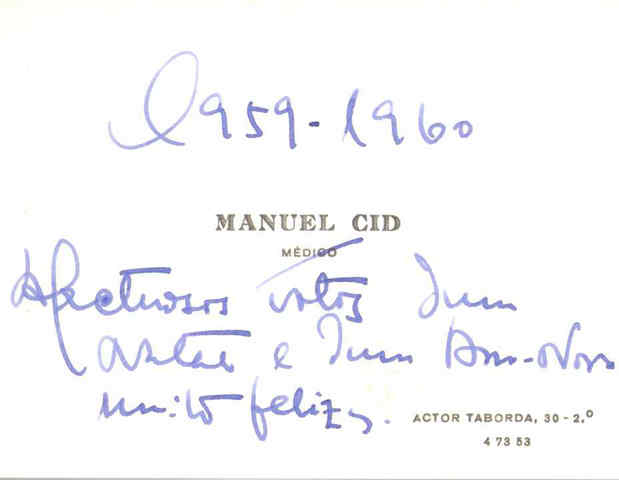 1959-1960
MANUEL CID
MÉDICO
Afectuosos votos dum
Natal e dum Ano-Novo
muito felizes.
ACTOR TABORDA, 30 - 2.º
4 73 53